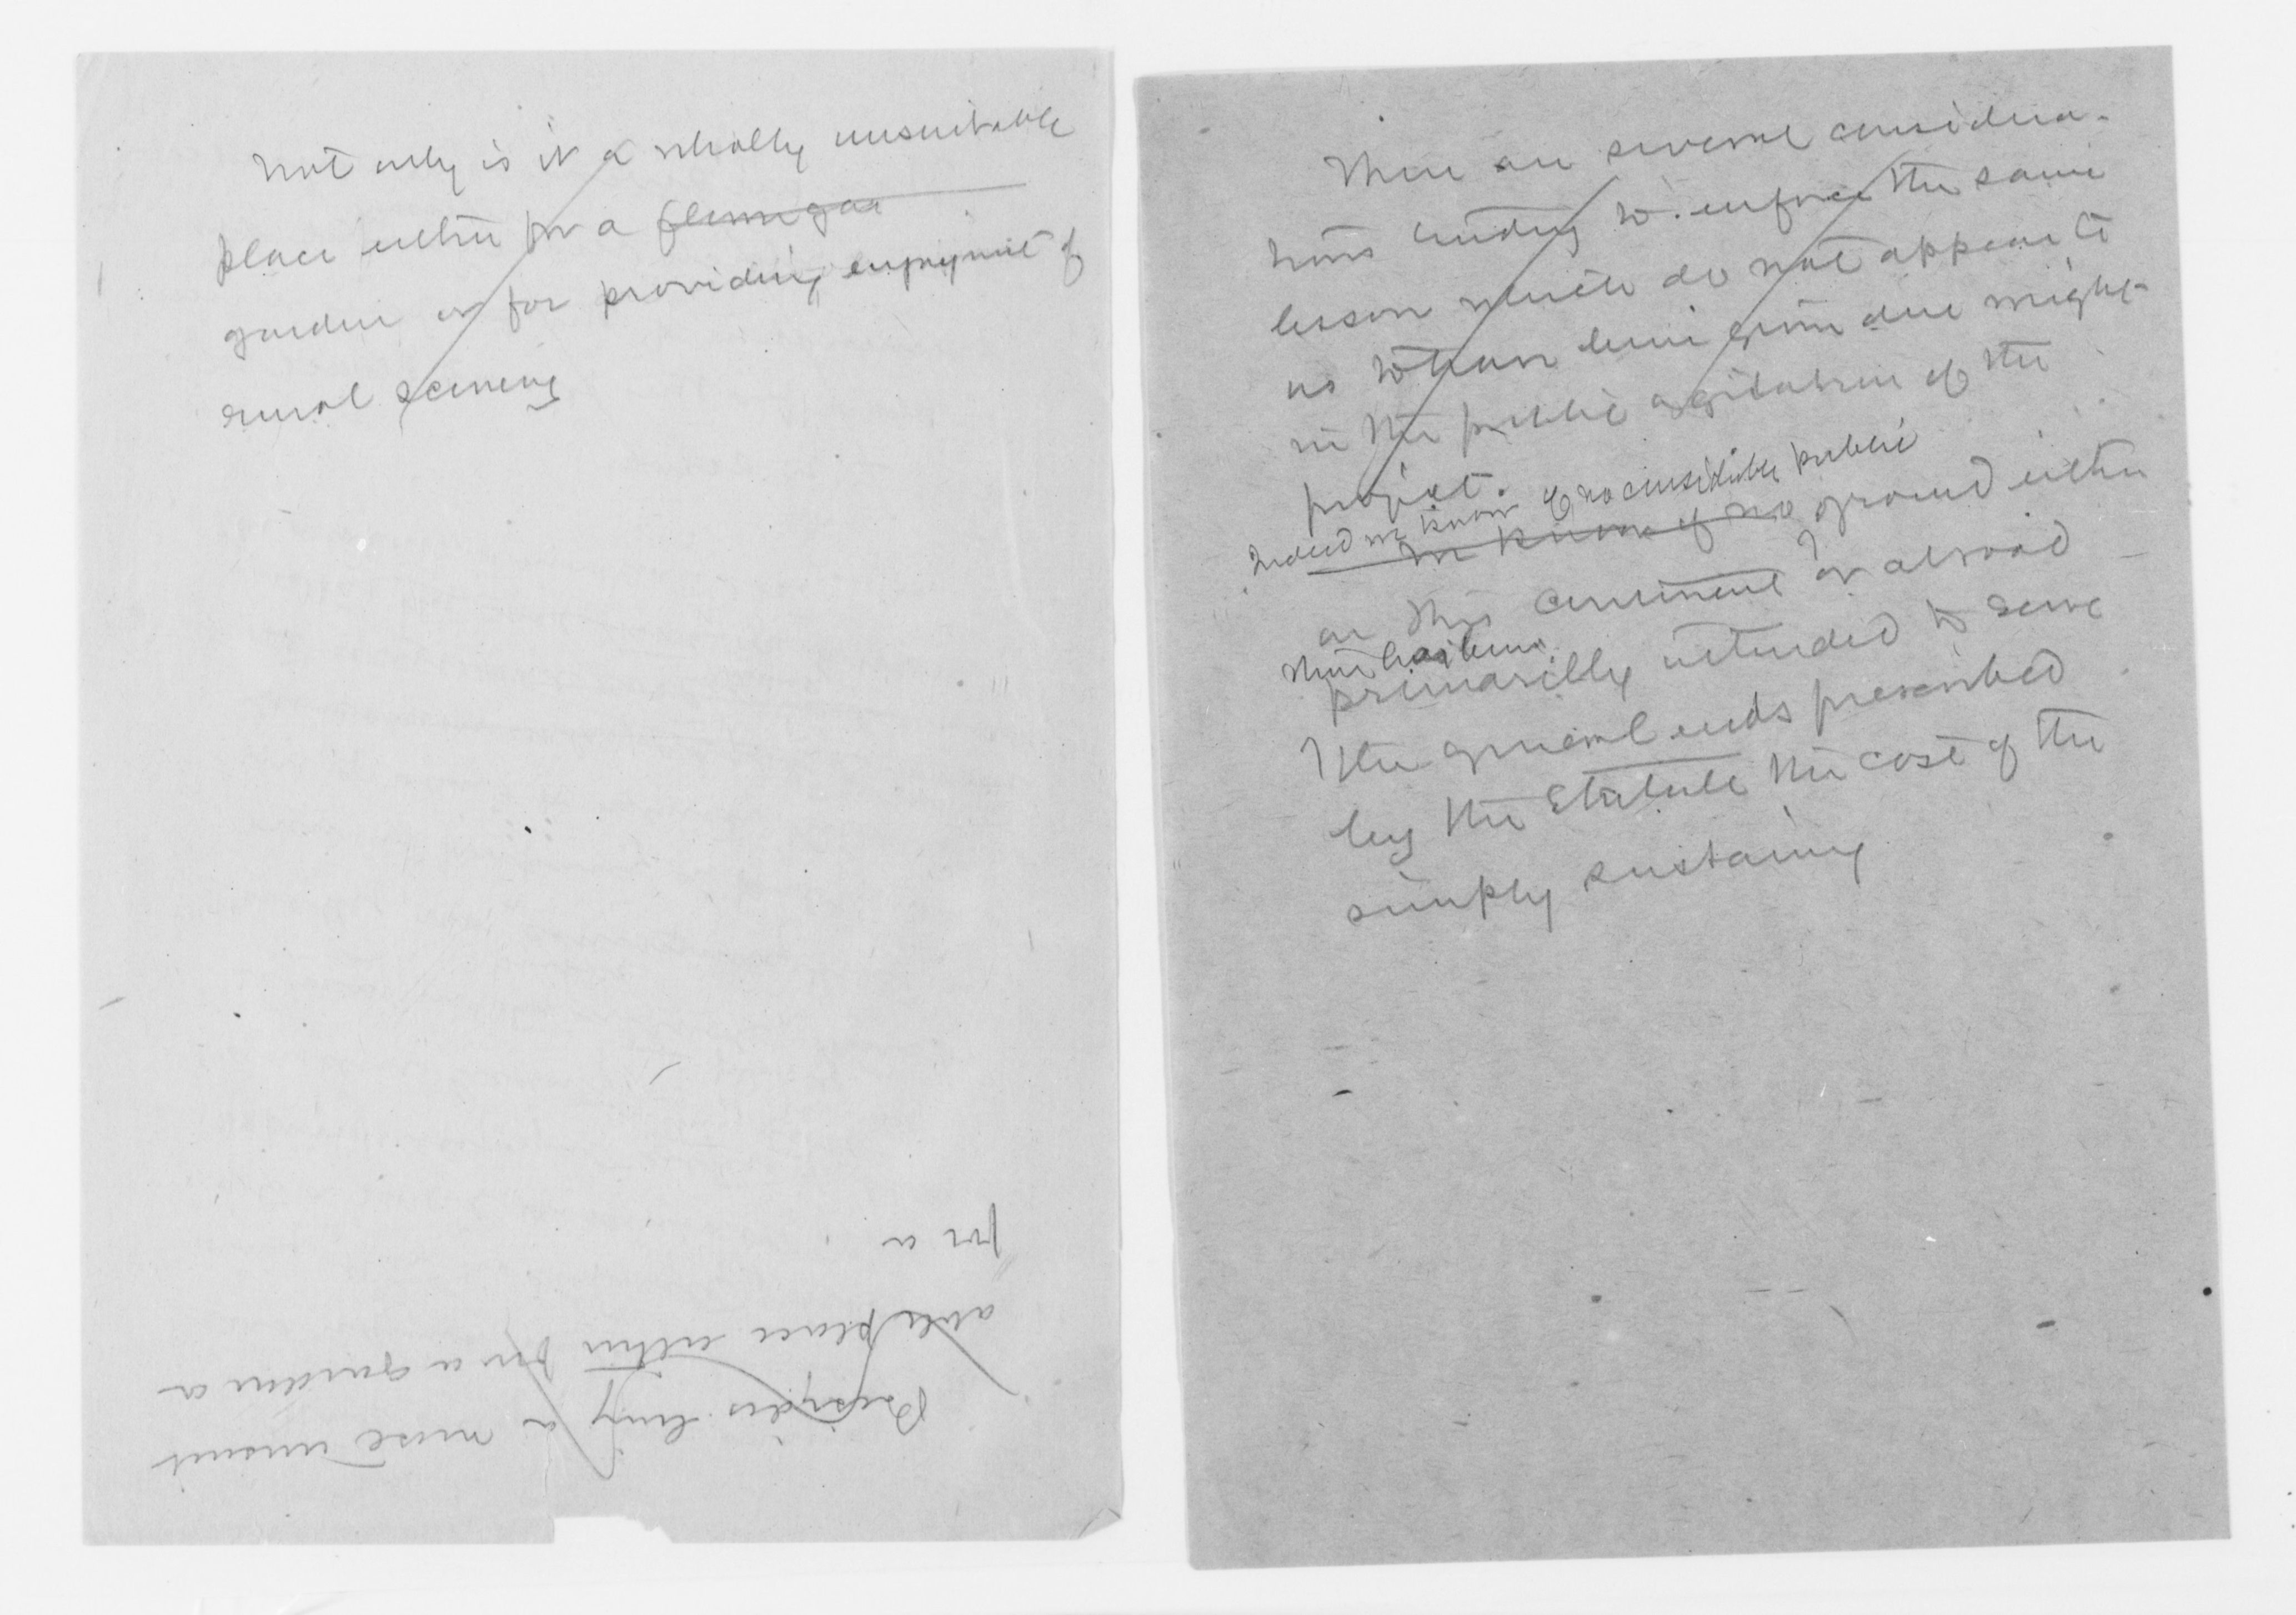 Not only is it a wholly unsuitable
place either for a
garden or for providing enjoyment of
rural scenery
Besides being a most unsuit
able place either for a garden a
for a
There are several considera-
tions tending to enforce the same
lesson which do not appear to
us to have been given due weight
in the public agitation of the
project.
Indeed we know of no considerable public
we know of no ground either
on this continent or abroad
There has been
primarily intended to serve
the general ends prescribed
by the Statute the cost of the
simply sustaining